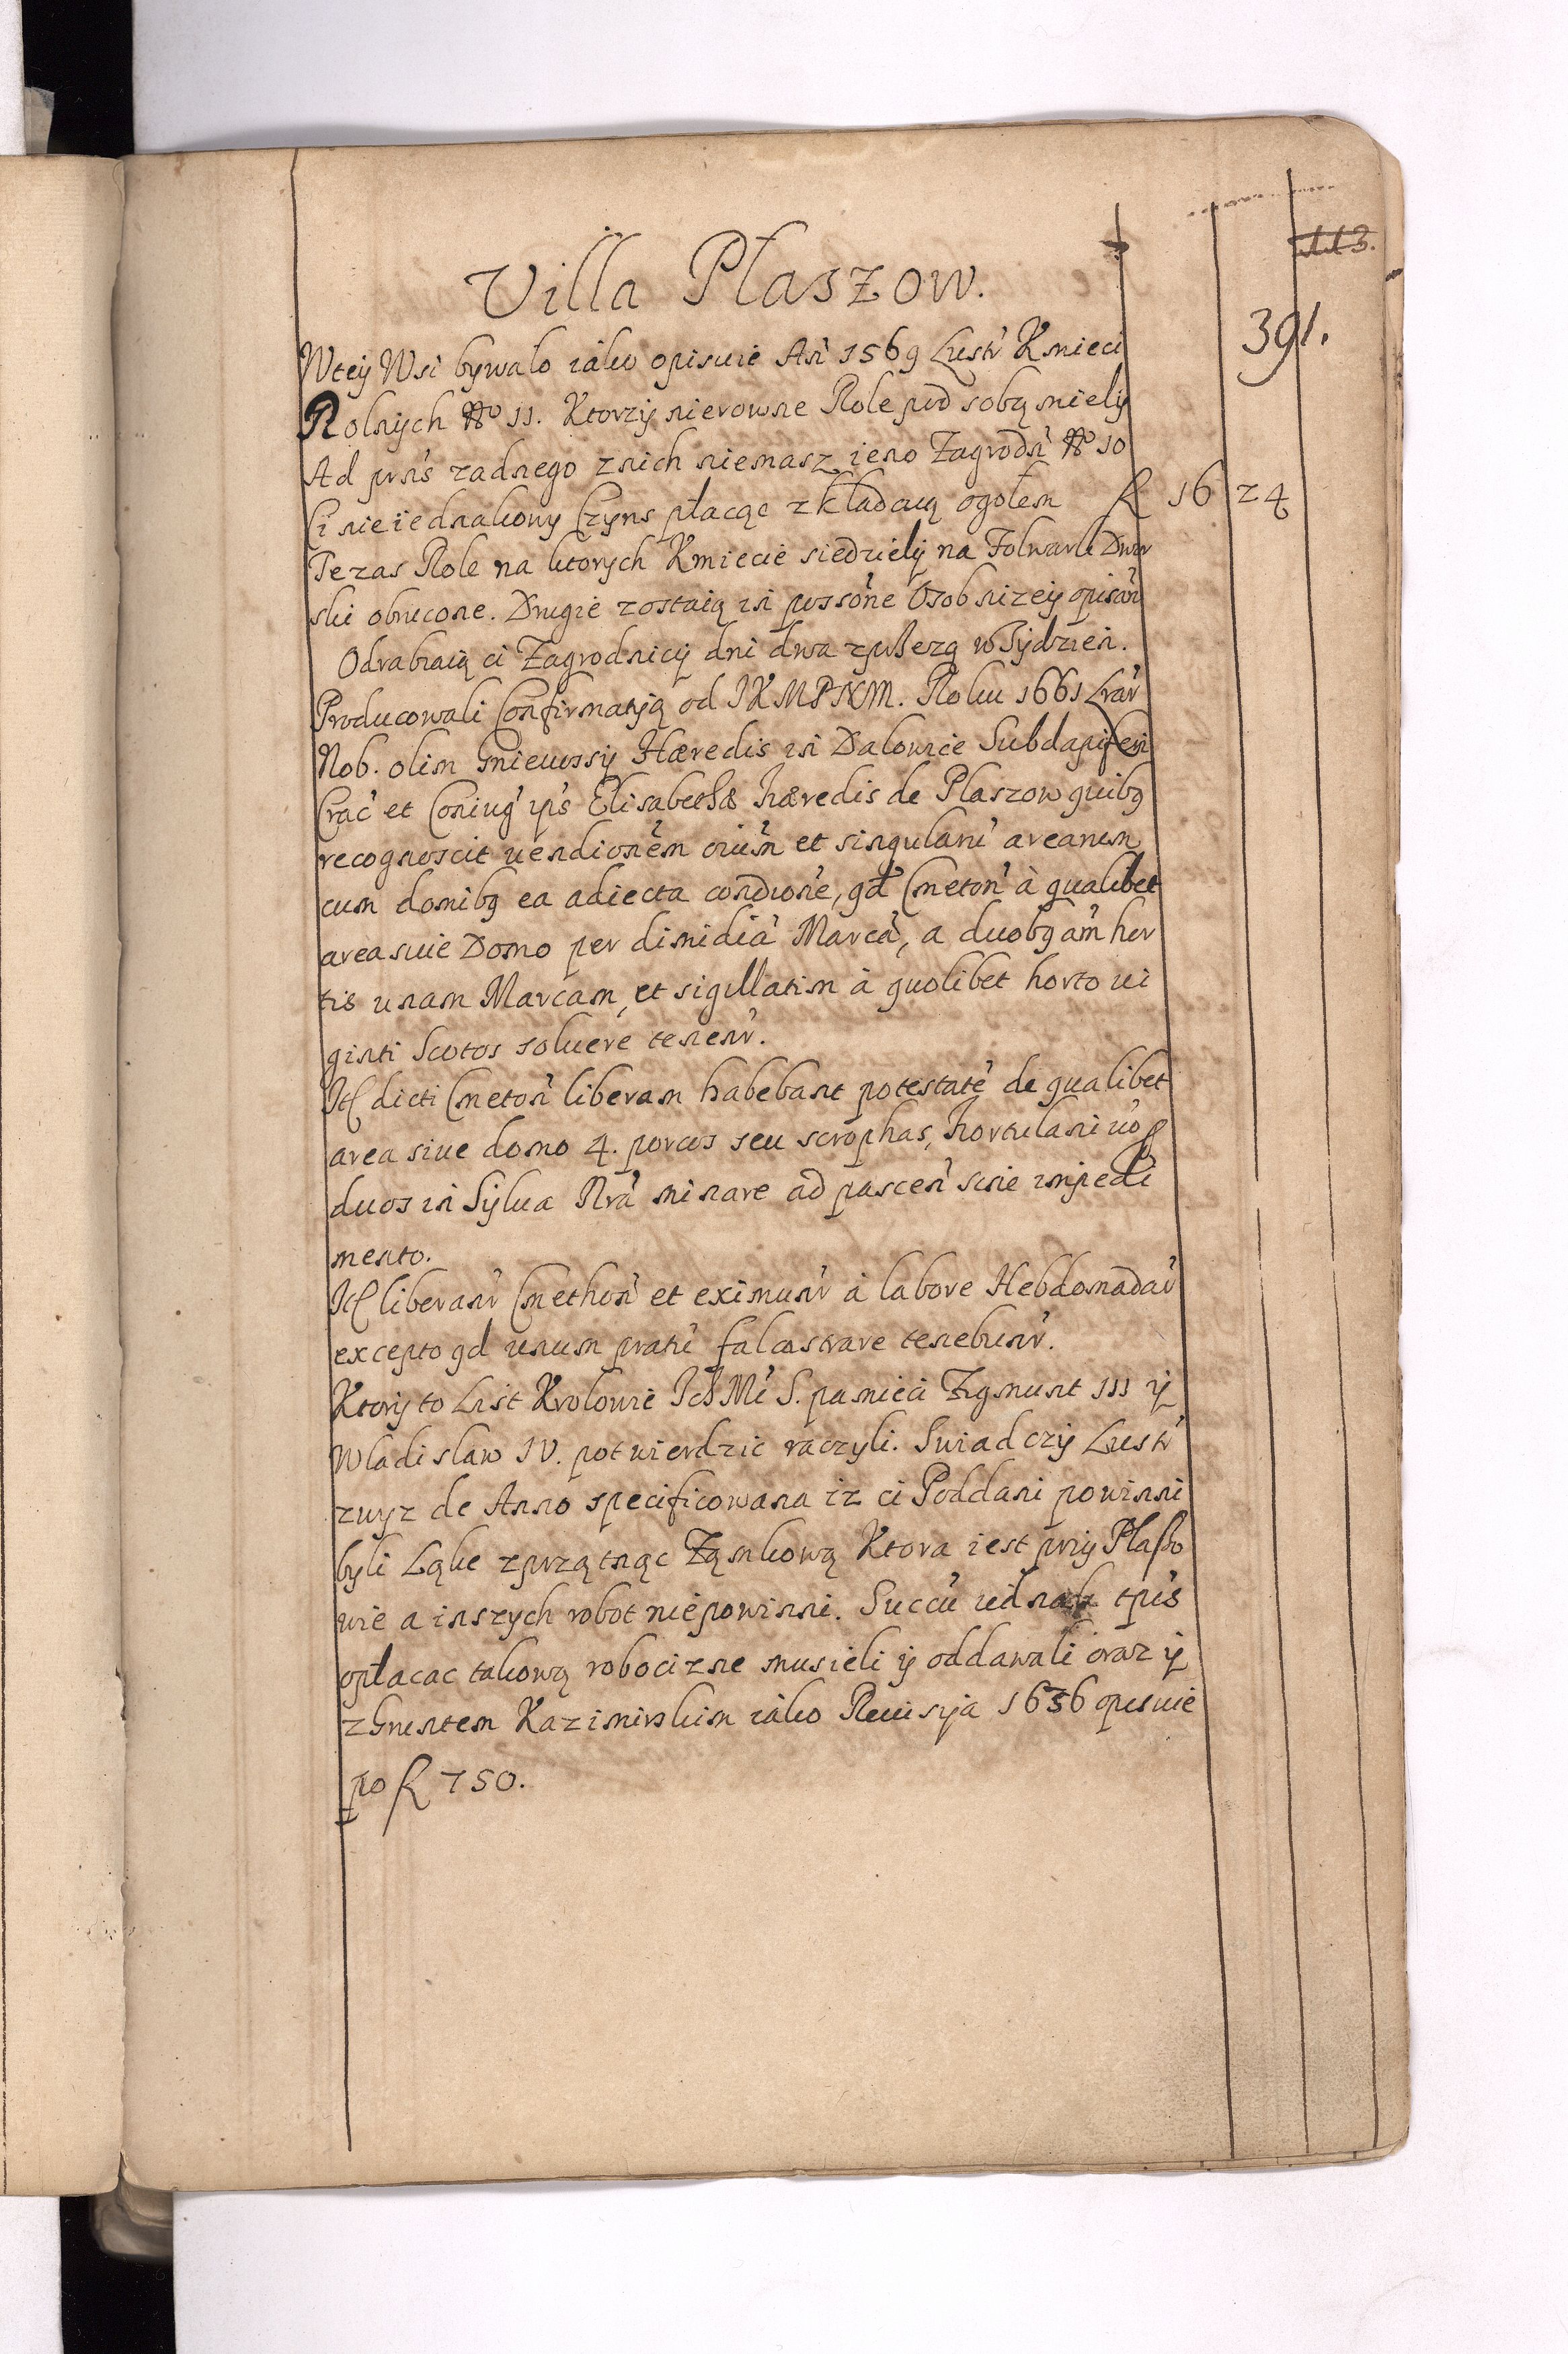 113.
391.
Villa Płaszow.
Wtey Wsi bywało iako opisuie An̄ 1569 Lustr̄ Kmieci
Rolnych No 11. Ktorzy nierowne Role pod sobą miely
Ad prn̄s zadnego znich niemasz ieno Zagrodn̄ No 10
Ci nieiednakowy Czyns płacąc zkładaią ogołem f 16 24
Teraz Role na ktorych Kmiecie siedziely na Folwark Dwor
ski obrucone. Drugie zostaią in possōne Osob nizey opisan̄
Odrabiaią ci Zagrodnicy dni dwa zpieszą w Tydzien.
Producowali Confirmatyą od JKMPNM. Roku 1661 Lrar̄
Nob. olim Gniewssy Hæredis in Dalowice Subdapiferi
Crac̄ et Coniuḡ ips̄ Elisabethæ hæredis de Plaszow quibq
recognoscit uendionēm oiūm et singularū arearum
cum domibq ea adiecta condione, qd Cmeton̄ à qualibet
area siue Domo per dimidiā Marcā, a duobq am̄ hor
tis unam Marcam, et sigillatim à quolibet horto ui
ginti Scotos soluere tenenr̄.
Itt dicti Cmeton̄ liberam habebant potestatē de qualibet
area siue domo 4. porcos seu scrophas, hortulani uō p
duos in Sylua Nrā minare ad pascen̄ sine impedi
mento.
Itt liberanr̄ Cmethon̄ et eximunr̄ à labore Hebdomadar̄
excepto qd unum pratū falcastrare tenebunr̄.
Ktory to List Krolowie IchMc̄ S. pamieci Zygmunt III y
Wladislaw IV. potwierdzic raczyli. Swiadczy Lustr̄
zwyz de Anno specificowana iz ci Poddani powinni
byli Łąke zprzątnąc Zamkową Ktora iest przy Płaszo
wie a inszych robot nie powinni. Succū iednak tpis̄
opłacac takową robocizne musieli y oddawali oraz y
z Gruntem Kazimirskim iako Reuisyja 1636 opisuie
po f 750.